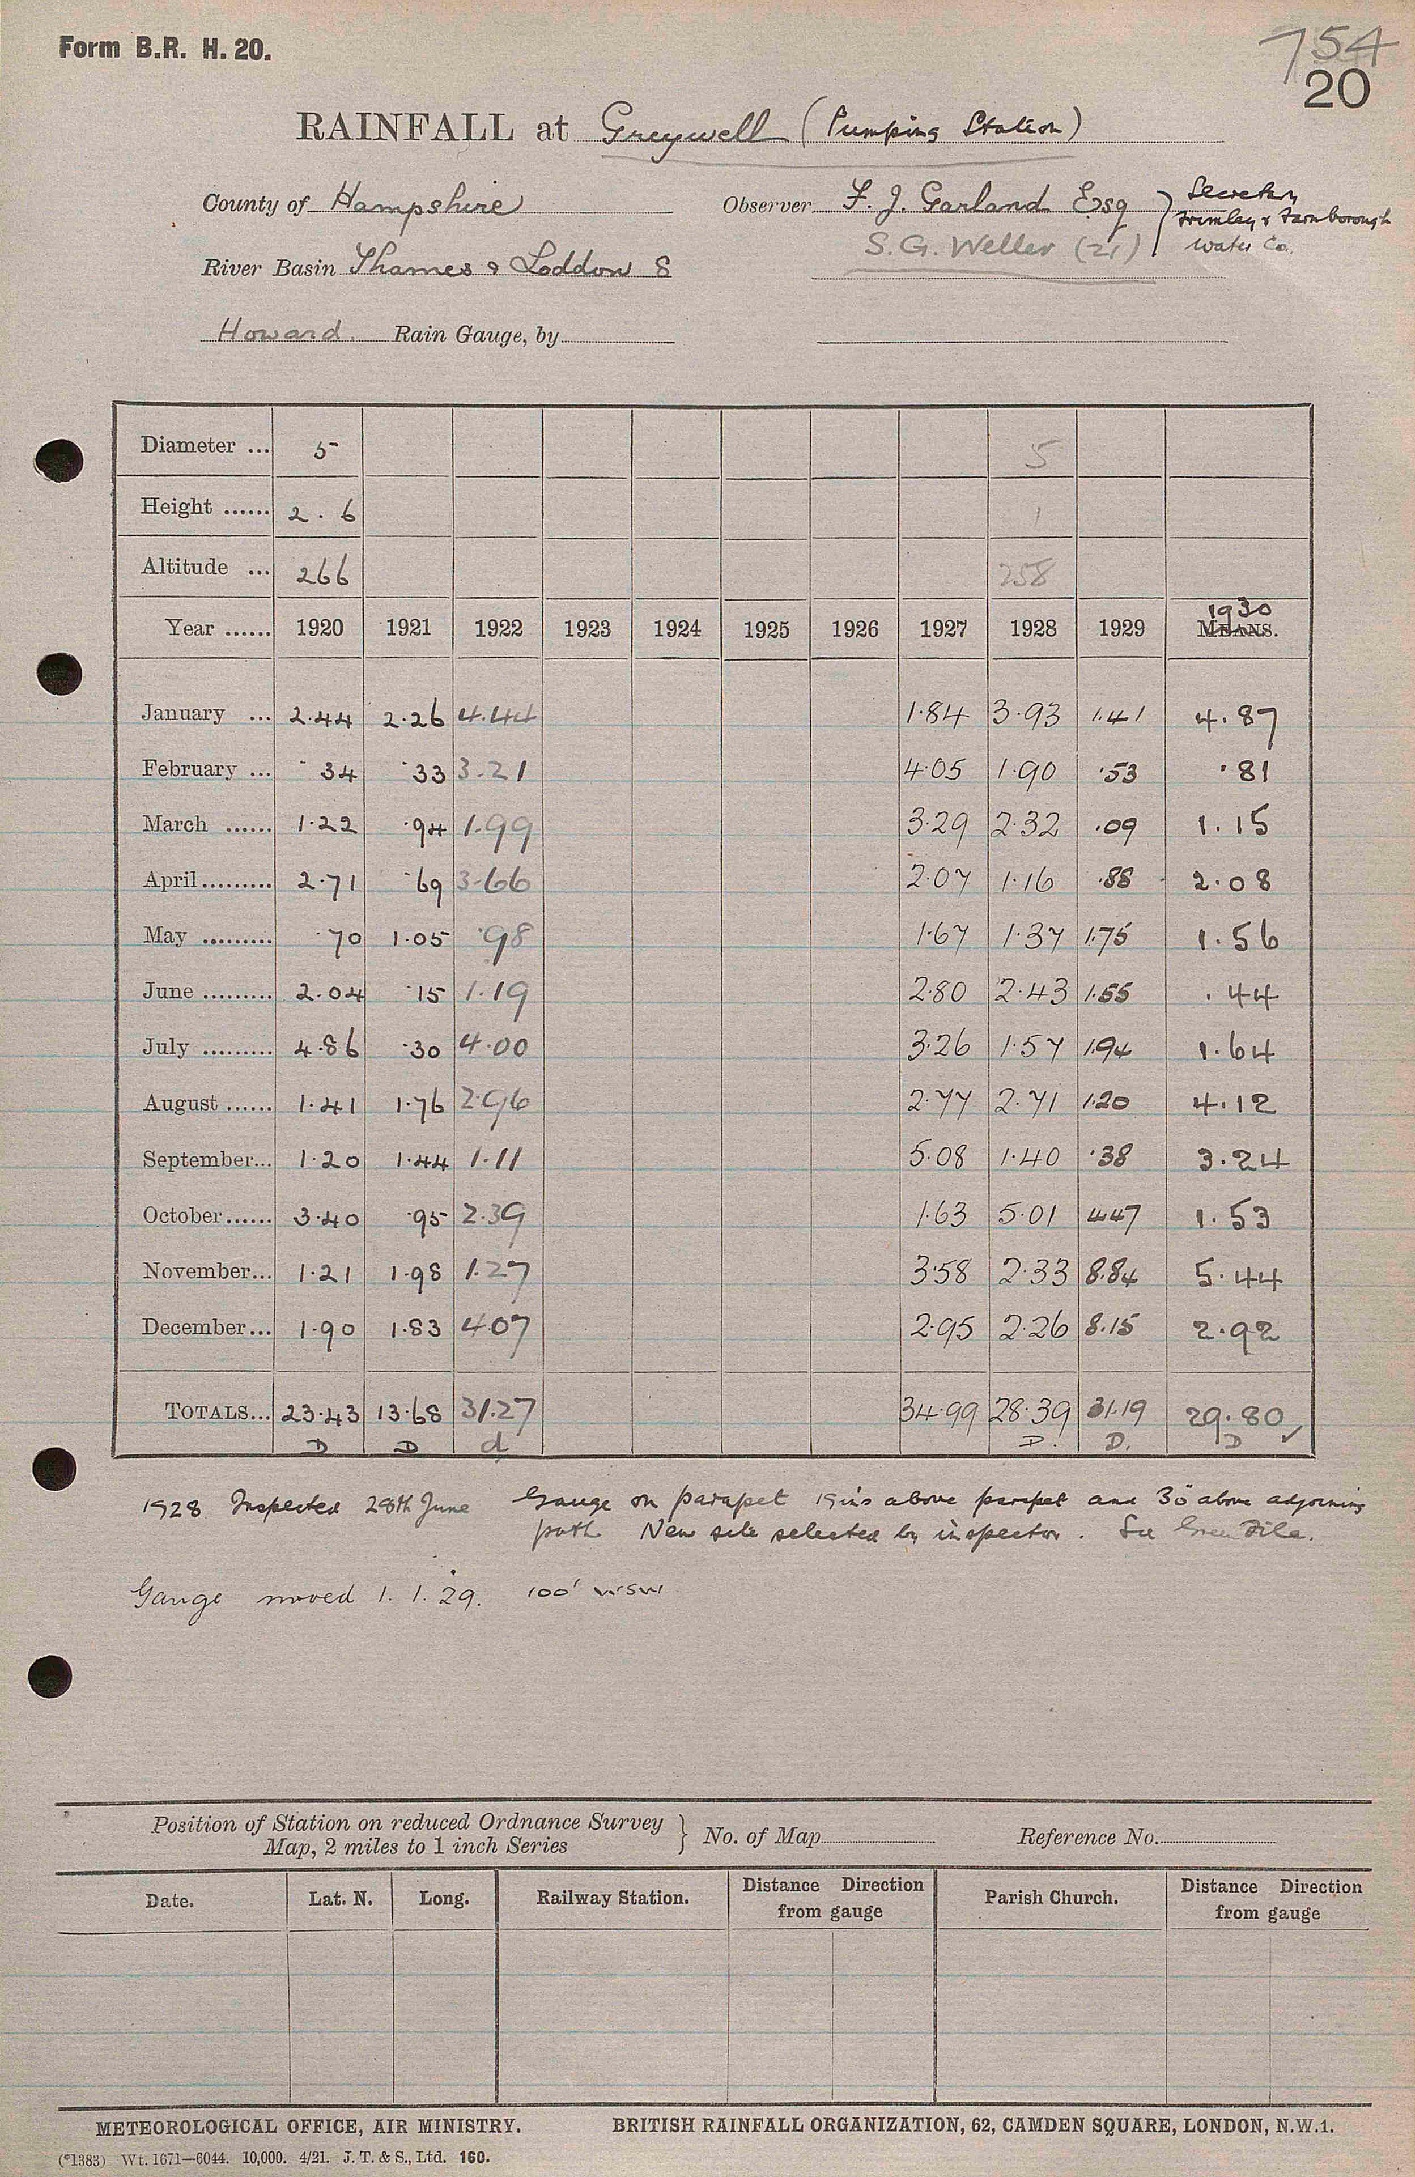 Form B.R. H. 20.
754
20
RAINFALL at Greywell (Pumping Station)
County of Hampshire Observer F. J. Garland Esq } Secretary
Frimley & Farnborough
Water Co.
S.G. Weller (21)
River Basin Thames & Loddon S
Howard. Rain Gauge, by
Diameter ... 5 5
Height ...... 2 . 6 1
Altitude ... 266 258
1930
Year ...... 1920 1921 1922 1923 1924 1925 1926 1927 1928 1929 MEANS.
January ... 2.44 2.26 4.44 1.84 3.93 1.41 4.87
February ... .34 .33 3.21 4.05 1.90 .53 .81
March ...... 1.22 .94 1.99 3.29 2.32 .09 1.15
April ......... 2.71 .69 3.66 2.07 1.16 .88 2.08
May ......... .70 1.05 .98 1.67 1.37 1.75 1.56
June ......... 2.04 .15 1.19 2.80 2.43 1.55 .44
July ......... 4.86 .30 4.00 3.26 1.57 1.94 1.64
August ...... 1.41 1.76 2.96 2.77 2.71 1.20 4.12
September... 1.20 1.44 1.11 5.08 1.40 .38 3.24
October ...... 3.40 .95 2.39 1.63 5.01 4.47 1.53
November... 1.21 1.98 1.27 3.58 2.33 8.84 5.44
December... 1.90 1.83 4.07 2.95 2.26 8.15 2.92
TOTALS... 23.43 13.68 31.27 34.99 28.39 31.19 29.80 ✓
D D d D. D. D
1928 Inspected 28th June Gauge on parapet 19ins above parapet and 30 above adjoining
path New site selected by inspector. See Green File.
Gauge moved 1. 1. 29. 100' WSW
Position of Station on reduced Ordnance Survey } No. of Map Reference No.
Map, 2 miles to 1 inch Series
Date. Lat. N. Long. Railway Station. Distance Direction from gauge Parish Church. Distance Direction from gauge
METEOROLOGICAL OFFICE, AIR MINISTRY. BRITISH RAINFALL ORGANIZATION, 62, CAMDEN SQUARE, LONDON, N.W.1.
(*1383) Wt. 1671—6044. 10,000. 4/21. J. T. & S., Ltd. 160.